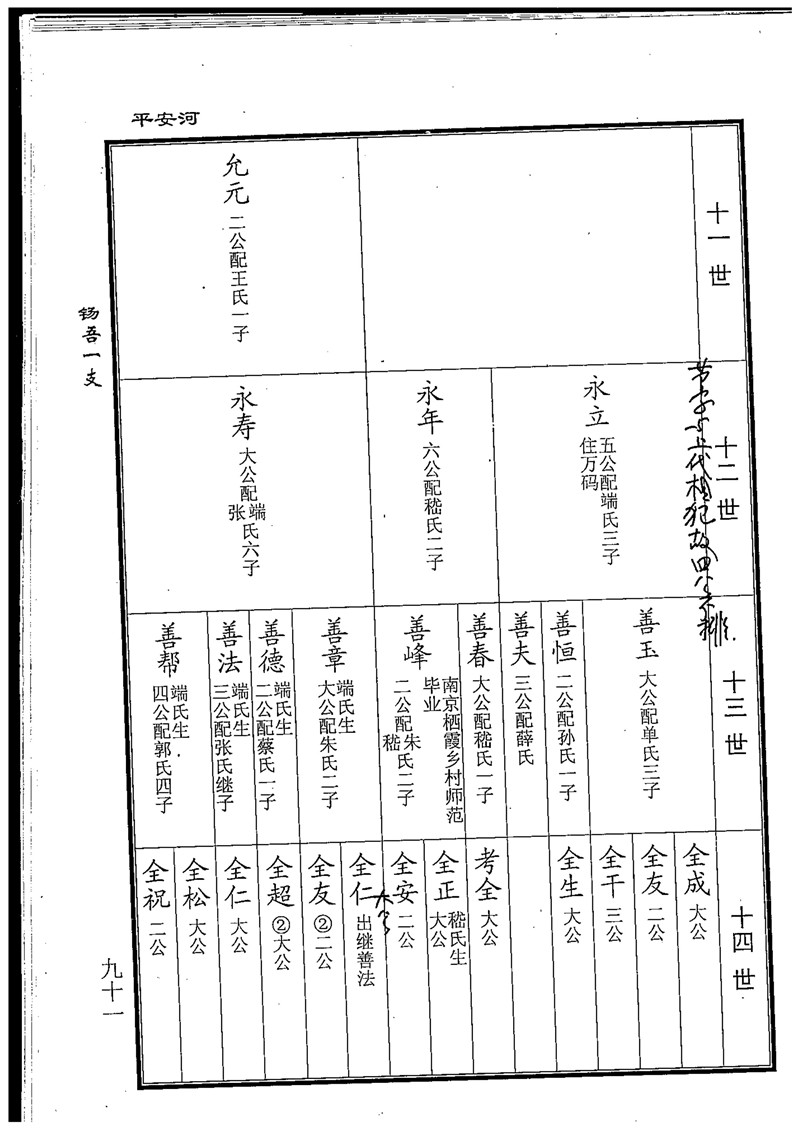 平安河
十一世
允元 二公配王氏一子
钖吾一支
十二世
永立 五公配端氏三子
住万码
永年 六公配嵇氏二子
永寿 大公配端氏六子
张
十三世
善玉 大公配单氏三子
善恒 二公配孙氏一子
善夫 三公配薛氏
善春 大公配嵇氏一子
善峰 南京栖霞乡村师范
毕业
二公配朱氏二子
嵇
善章 端氏生
大公配朱氏二子
善德 端氏生
二公配蔡氏一子
善法 端氏生
三公配张氏继子
善帮 端氏生
四公配郭氏四子
十四世
全成 大公
全友 二公
全干 三公
全生 大公
考全 大公
全正 嵇氏生
大公
全安 二公
全仁 出继善法
大公
全友 ②二公
全超 ②大公
全仁 大公
全松 大公
全祝 二公
九十一